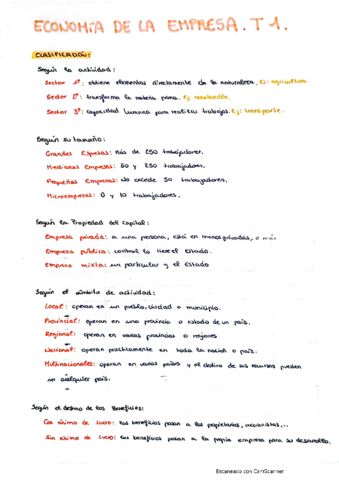 ECONOMÍA DE LA EMPRESA. T1.
CLASIFICACIÓN:
Según la actividad:
Sector 1º: obtiene elementos directamente de la naturaleza. Ej: agricultura
Sector 2º: transforma la materia prima. Ej: construcción
Sector 3º: capacidad humana para realizar trabajos. Ej: transporte.
Según su tamaño:
Grandes Empresas: Más de 250 trabajadores.
Medianas Empresas: 50 y 250 trabajadores.
Pequeñas Empresas: No excede 50 trabajadores.
Microempresas: 0 y 10 trabajadores.
Según la Propiedad del Capital:
Empresa privada: a una persona, está en manos privadas, o más
Empresa pública: control lo tiene el estado.
Empresa mixta: un particular y el Estado
Según el ámbito de actividad:
Local: operan en un pueblo, ciudad o municipio.
Provincial: operan en una provincia o estado de un país.
Regional: operan en varias provincias o regiones
Nacional: operan prácticamente en toda la nación o país.
Multinacionales: operan en varios países y el destino de sus recursos pueden
en cualquier país.
Según el destino de los Beneficios:
Con ánimo de Lucro: los beneficios pasan a los propietarios, accionistas...
Sin ánimo de Lucro: los beneficios pasan a la propia empresa para su desarrollo.
Escaneado con CamScanner